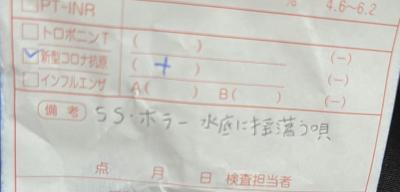 □ PT-INR % 4.6～6.2
□ トロポニンT ( ) (-)
☑ 新型コロナ抗原 ( + ) (-)
□ インフルエンザ A( ) B( ) (-)
(備考) SS・ホラー 水底に揺蕩う唄
点 月 日 検査担当者